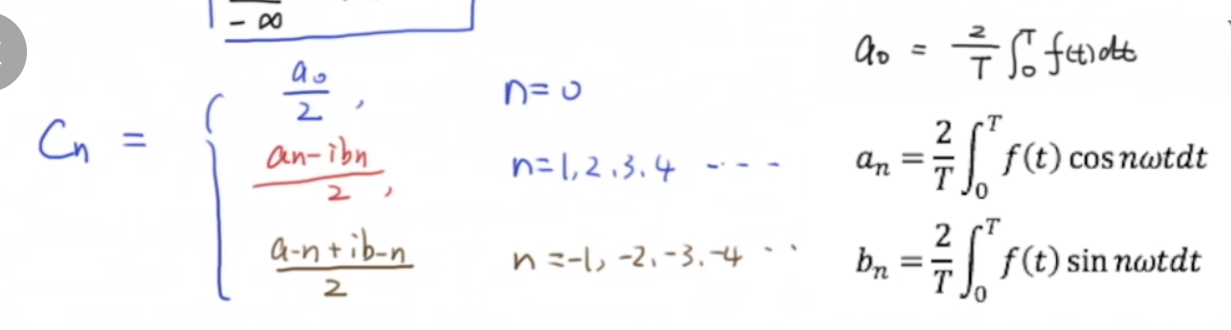 -∞
Cn = { a0/2, n=0
an-ibn/2, n=1,2,3,4 ----
a-n+ib-n/2 n=-1,-2,-3,-4 ··
a0 = 2/T ∫₀ᵀ f(t)dt
an = 2/T ∫₀ᵀ f(t) cos nωtdt
bn = 2/T ∫₀ᵀ f(t) sin nωtdt